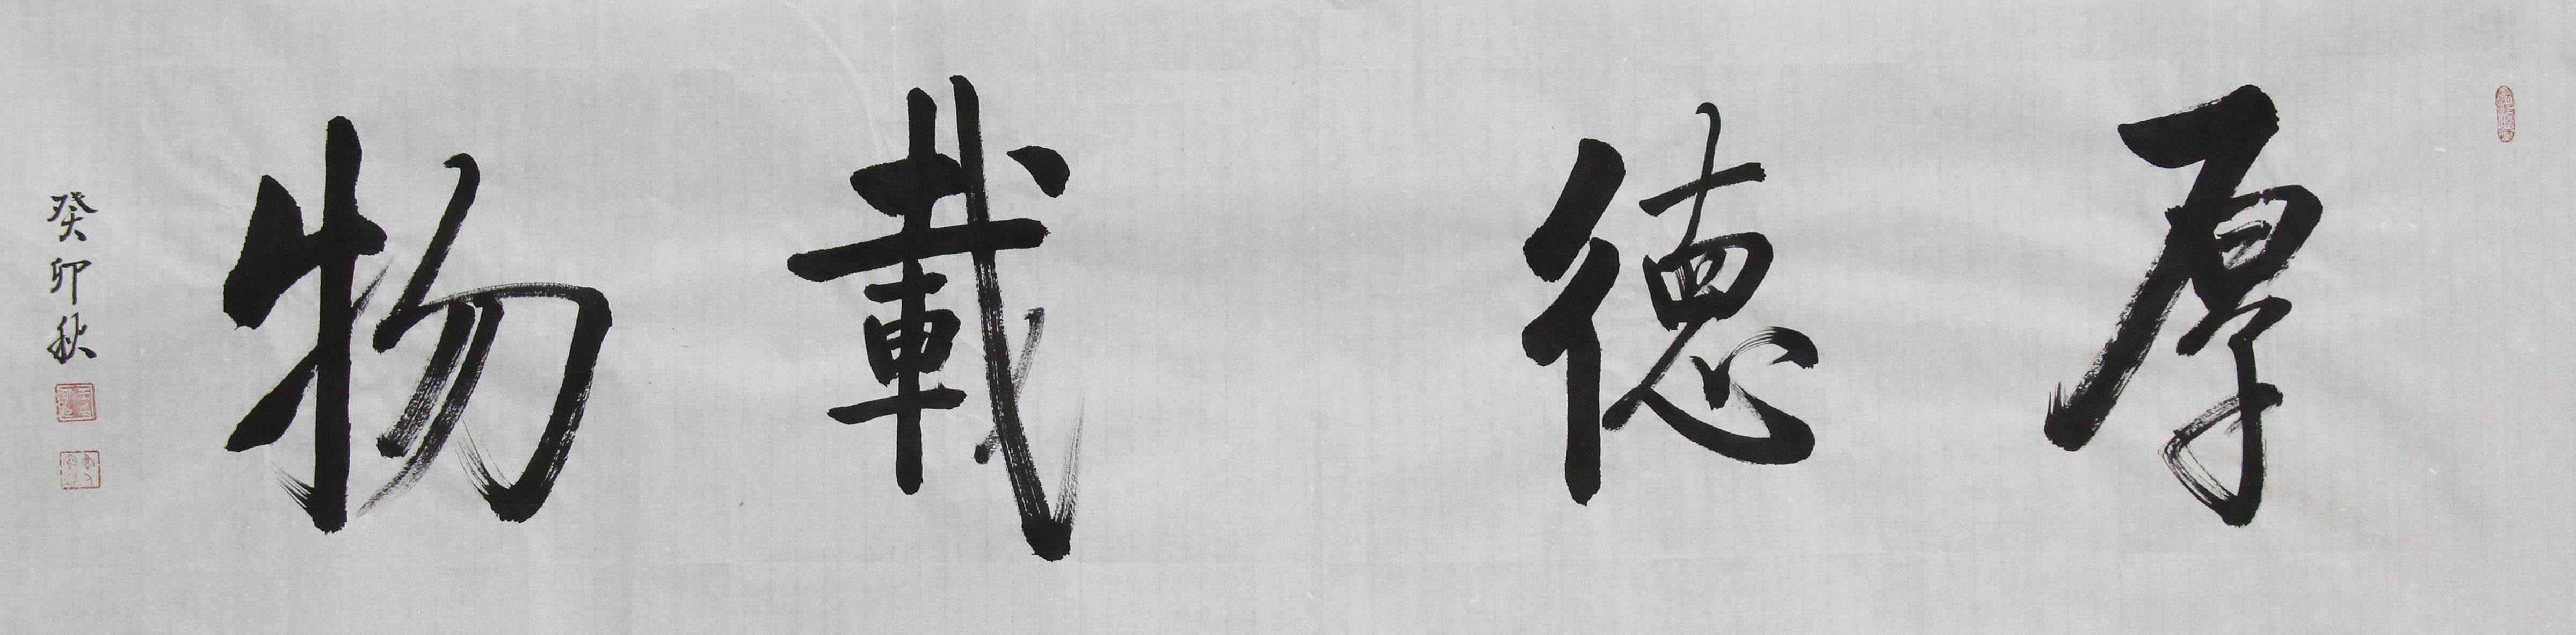 厚德載物
癸卯秋